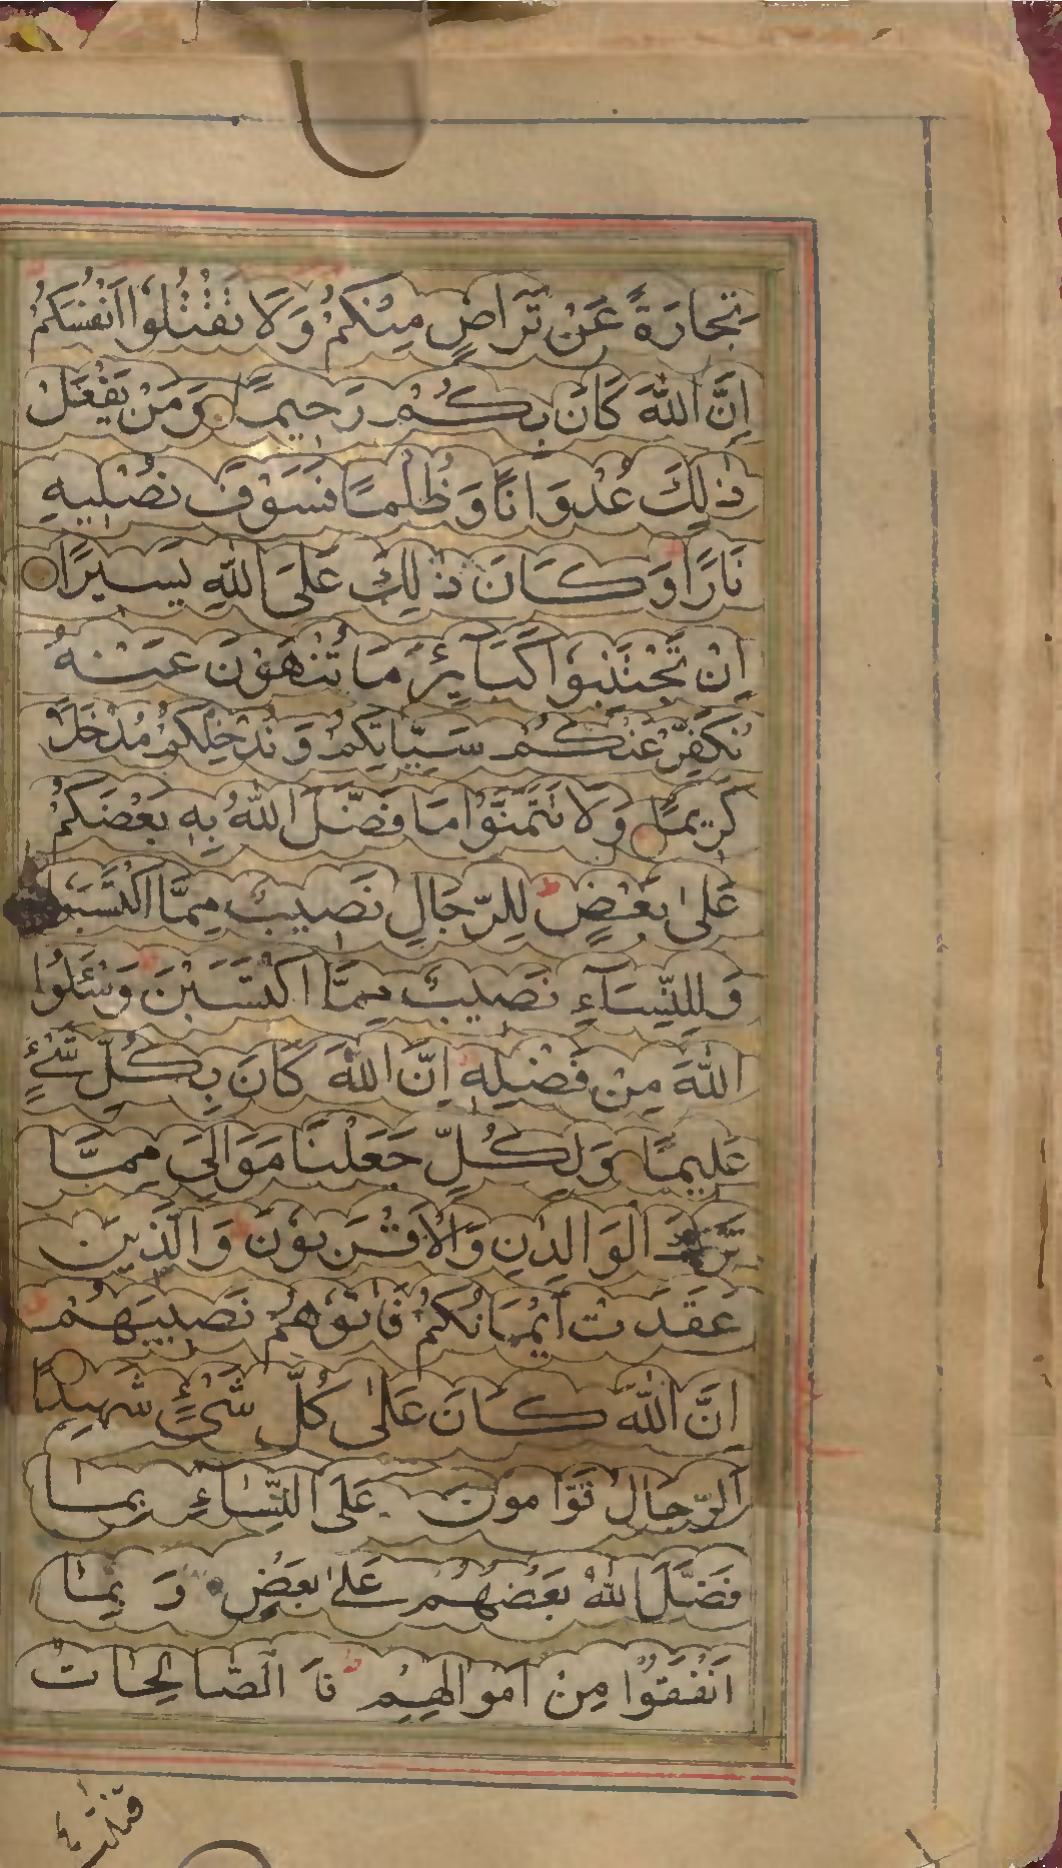 تِجَارَةً عَنْ تَرَاضٍ مِنْكُمْ وَلَا تَقْتُلُوٓا اَنْفُسَكُمْ
اِنَّ اللّٰهَ كَانَ بِكُمْ رَحِيمًا وَمَنْ يَفْعَلْ
ذٰلِكَ عُدْوَانًا وَظُلْمًا فَسَوْفَ نُصْلِيهِ
نَارًا وَكَانَ ذٰلِكَ عَلَى اللّٰهِ يَسِيرًا
اِنْ تَجْتَنِبُوا كَبَآئِرَ مَا تُنْهَوْنَ عَنْهُ
نُكَفِّرْ عَنْكُمْ سَيِّاٰتِكُمْ وَنُدْخِلْكُمْ مُدْخَلًا
كَرِيمًا وَلَا تَتَمَنَّوْا مَا فَضَّلَ اللّٰهُ بِهِ بَعْضَكُمْ
عَلٰى بَعْضٍ لِلرِّجَالِ نَصِيبٌ مِمَّا اكْتَسَبُوا
وَلِلنِّسَآءِ نَصِيبٌ مِمَّا اكْتَسَبْنَ وَسْئَلُوا
اللّٰهَ مِنْ فَضْلِهِ اِنَّ اللّٰهَ كَانَ بِكُلِّ شَيْءٍ
عَلِيمًا وَلِكُلٍّ جَعَلْنَا مَوَالِيَ مِمَّا
تَرَكَ الْوَالِدَانِ وَالْاَقْرَبُونَ وَالَّذِينَ
عَقَدَتْ اَيْمَانُكُمْ فَاٰتُوهُمْ نَصِيبَهُمْ
اِنَّ اللّٰهَ كَانَ عَلٰى كُلِّ شَيْءٍ شَهِيدًا
اَلرِّجَالُ قَوَّامُونَ عَلَى النِّسَاءِ بِمَا
فَضَّلَ اللّٰهُ بَعْضَهُمْ عَلٰى بَعْضٍ وَ بِمَا
اَنْفَقُوْا مِنْ اَمْوَالِهِمْ فَا الصَّالِحَاتُ